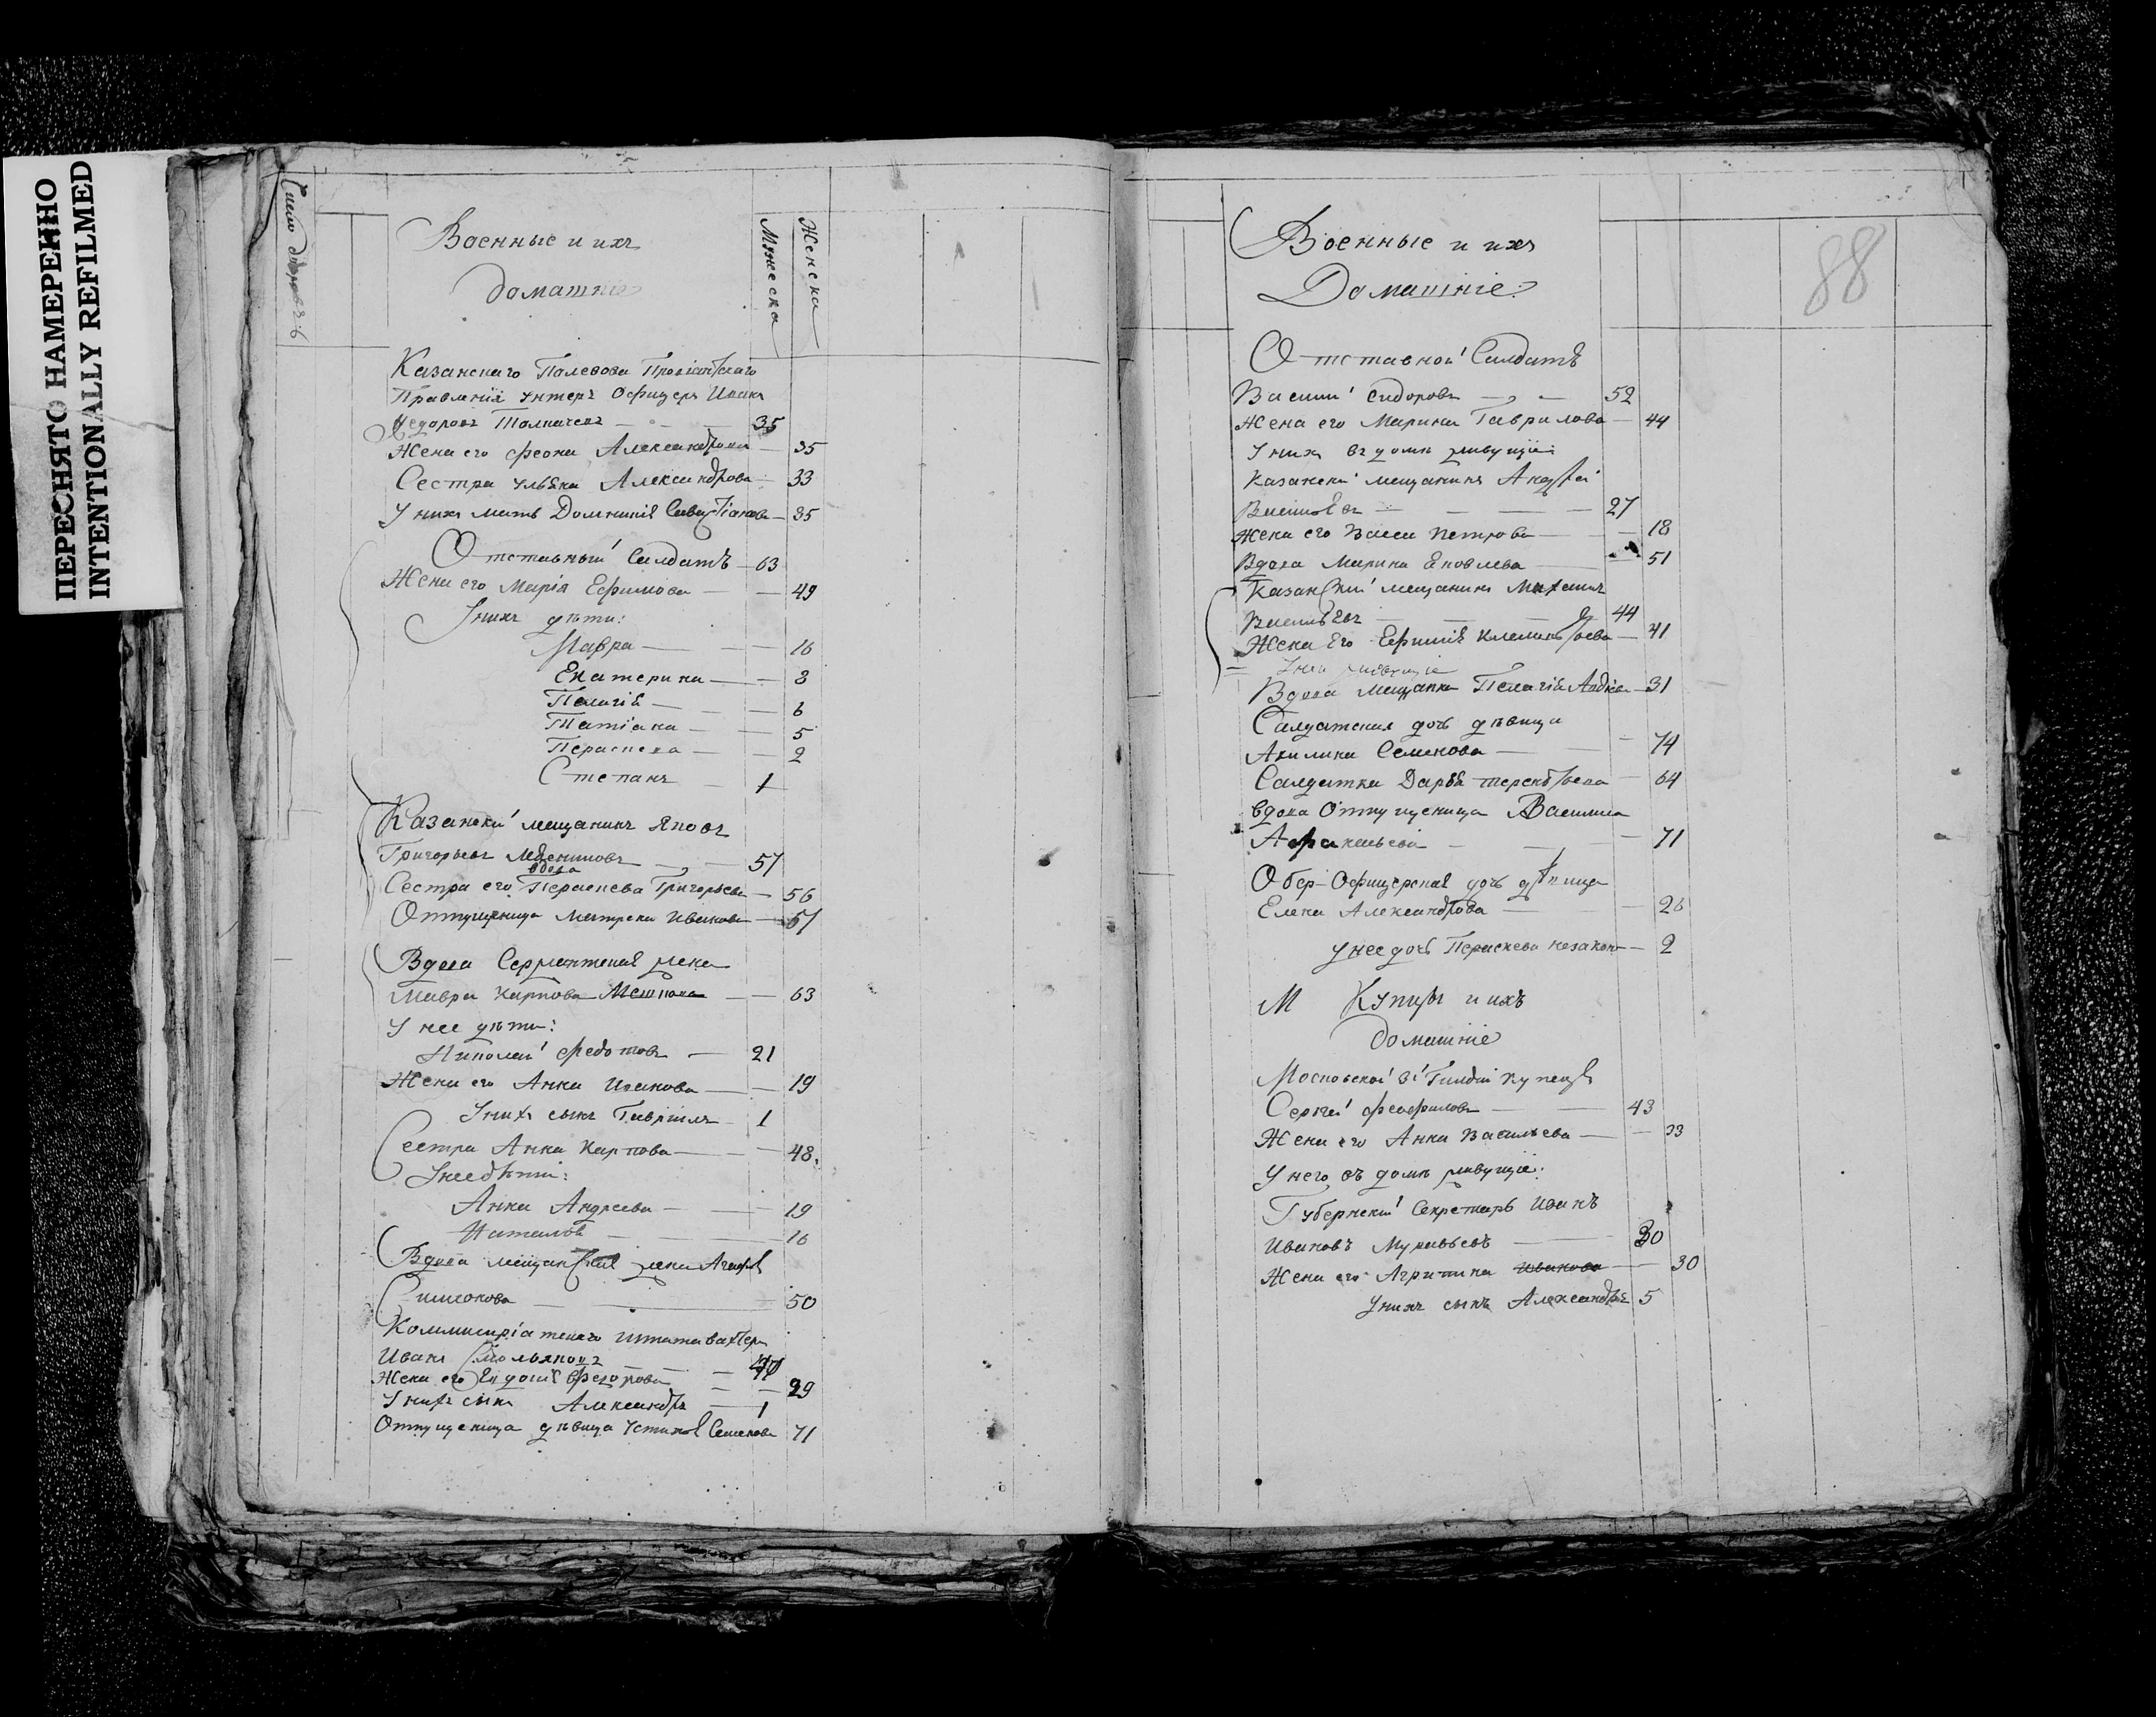 ПЕРЕСНЯТО НАМЕРЕННО
INTENTIONALLY REFILMED
Число дворовъ
Военные и ихъ
домашніе
Мужеска
Женска
Казанскаго Полевова Провіантскаго
Правленія унтеръ Офицеръ Иванъ
Федоровъ Толпачевъ 35
Жена его Феона Александрова 35
Сестра Ульяна Александрова 33
У нихъ мать Домникія Савастіанова 35
Отставный Салдатъ 63
Жена его Марія Ефимова 49
У нихъ дѣти:
Мавра 16
Екатерина 8
Пелагія 6
Татіана 5
Пераскева 2
Степанъ 1
Казанскій мещанинъ Яковъ
Григорьевъ 57
вдова
Сестра его Пераскева Григорьева 56
Отпущеница Матрена Иванова 57
Вдова Сержантская жена
Мавра Карпова 63
У нее дѣти:
Николай Федотовъ 21
Жена его Анна Иванова 19
У нихъ сынъ Гавріилъ 1
Сестра Анна Карпова 48.
У нее дѣти:
Анна Андреева 19
Наталья 16
Вдова мещанская жена Агафья
Симеонова 50
Коммисаріатскаго штата вахтеръ
Иванъ
Жена его Евдокія Федорова 29
У нихъ сынъ Александръ 1
Отпущеница дѣвица Устинья Семенова 71
Военные и ихъ
Домашніе
88
Отставной Салдатъ
Василій Сидоровъ 52
Жена его Марина Гаврилова 44
У нихъ въ домѣ живущіе
Казанскій мещанинъ Андрей
Васильевъ 27
Жена его Васса Петрова 18
Вдова Марина Яковлева 51
Казанскій мещанинъ Михаилъ
Васильевъ 44
Жена Его Ефимія Климентьева 41
У него живущіе
Вдова мещанка Пелагія 31
Салдатская дочь дѣвица
Акилина Семенова 74
Салдатка Дарья Терентьева 64
вдова Отпущеница Василиса
Афанасьева 71
Обер-Офицерская дочь дѣвица
Елена Александрова 26
У нее дочь Пераскева незакон 2
М Купцы и ихъ
домашніе
Московской 3й Гилдіи купецъ
Сергѣй Феофиловъ 43
Жена его Анна Васильева 33
У него въ домѣ живущіе:
Губернскій Секретарь Иванъ
Ивановъ Муравьевъ 30
Жена его Агрипина Иванова 30
У нихъ сынъ Александръ 5